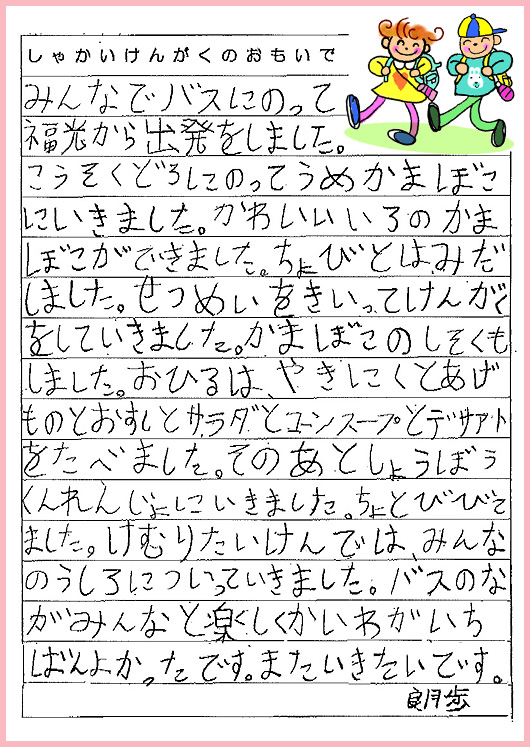 しゃかいけんがくのおもいで
みんなでバスにのって
福光から出発をしました。
こうそくどろにのってうめかまぼこ
にいきました。かわいいいろのかま
ぼこができました。ちょびとはみだ
しました。せつめいをきいってけんがく
をしていきました。かまぼこのしそくも
しました。おひるは、やきにくとあげ
ものとおすしとサラダとコーンスープとデサアト
をたべました。そのあとしょうぼう
くんれんじょにいきました。ちょとびびて
ました。けむりたいけんでは、みんな
のうしろについっていきました。バスのな
がみんなと楽しくかいわがいち
ばんよかったです。またいきたいです。
朗歩